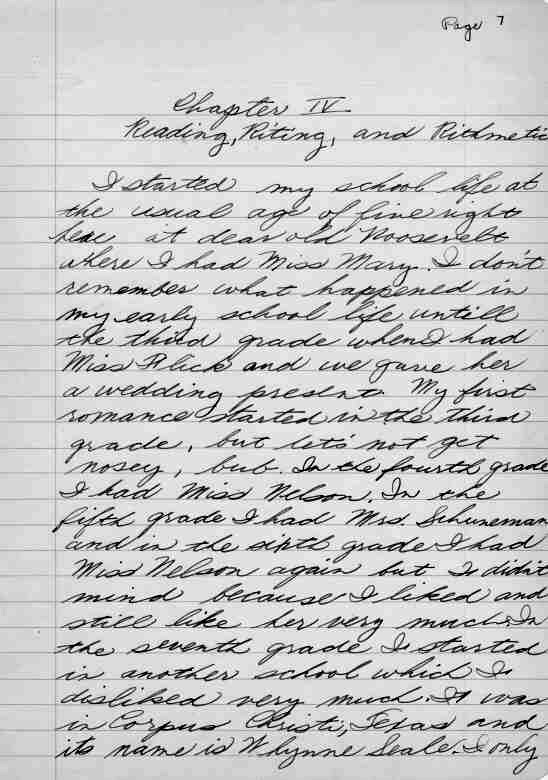 Page 7
Chapter IV
Reading, Riting, and Rithmetic
I started my school life at
the usual age of five right
here at dear old Roosevelt
where I had Miss Mary. I don't
remember what happened in
my early school life untill
the third grade when I had
Miss Flick and we gave her
a wedding present. My first
romance started in the third
grade, but let's not get
nosey, bub. In the fourth grade
I had Miss Nelson. In the
fifth grade I had Mrs. Schuneman
and in the sixth grade I had
Miss Nelson again but I didn't
mind because I liked and
still like her very much. In
the seventh grade I started
in another school which I
disliked very much. It was
in Corpus Christi, Texas and
its name is Whynne Seale. I only